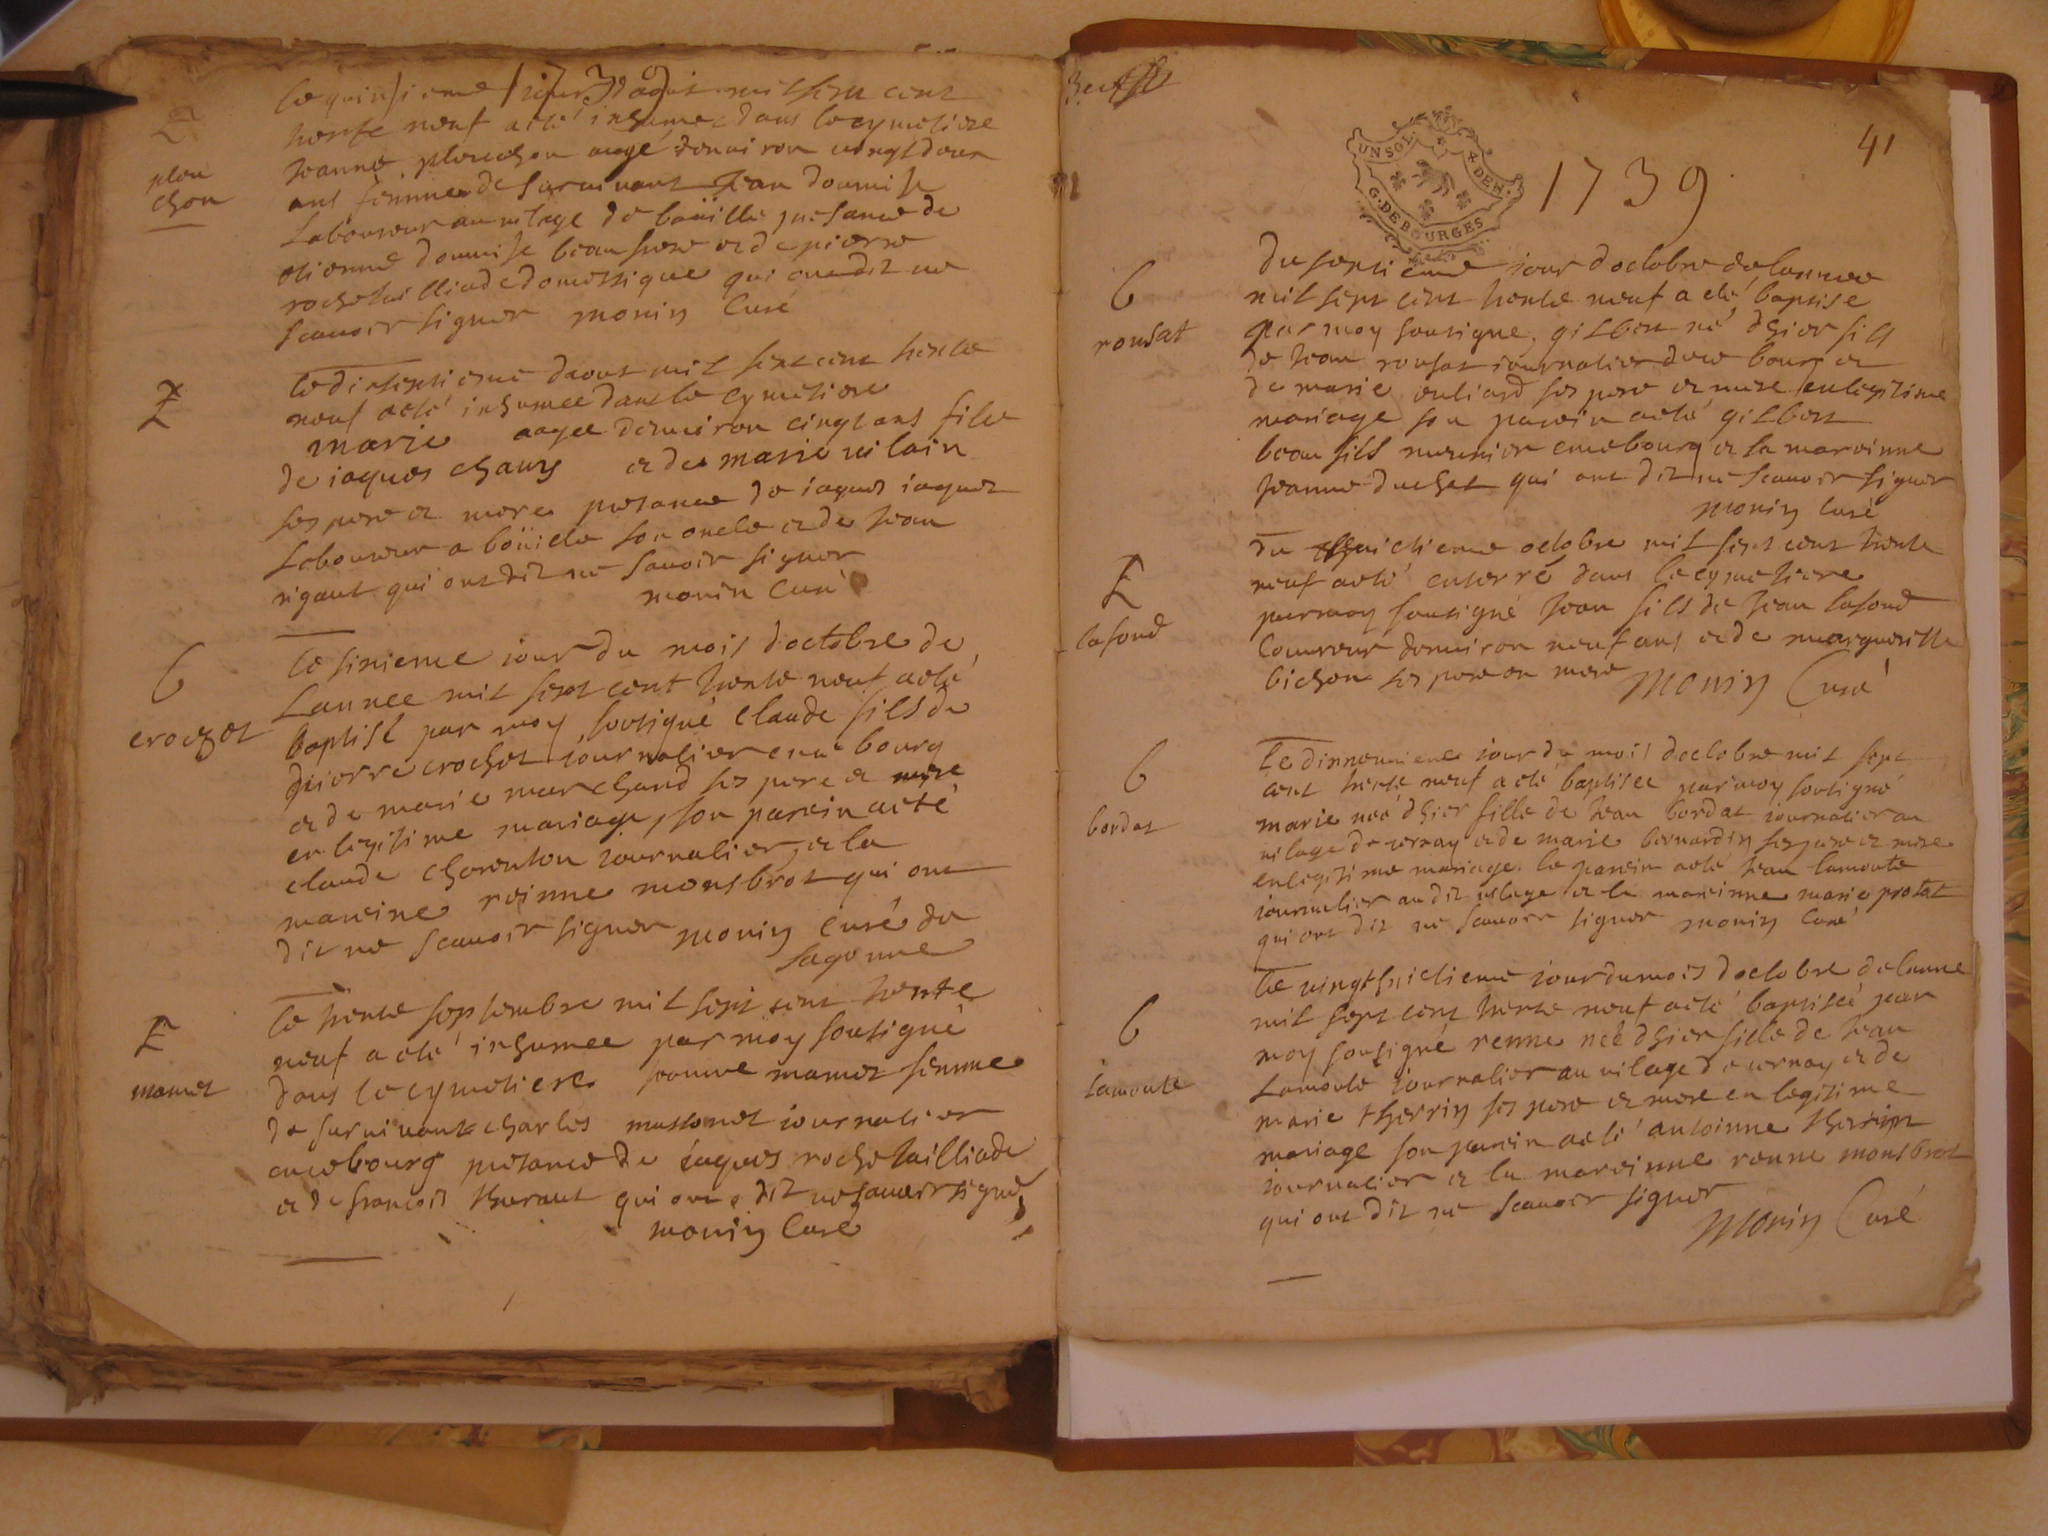 1739
le quinsieme jour daout mil sept cent
trente neuf a eté inhumee dans le cymetiere
plou
chon
Jeanne plouchon aagé denuiron vingt deux
ans femme de suruiuant Jean doumise
Laboureur au uilage de boüille presance de
etienne doumise beau frere et de pierre
rochetailliade domestique qui ont dit ne
scauoir signer monin Curé
E
le dixseptieme daout mil sept cent trente
neuf a eté inhumee dans le cymetiere
marie aagee denuiron cinq ans fille
de iaques chaus et de marie uilain
ses pere et mere presance de iaques iaquet
Laboureur a boüiele son oncle et de Jean
rigaut qui ont dit ne sauoir signer
monin Curé
b
crochet
le sixieme iour du mois doctobre de
Lannee mil sept cent trente neuf a eté
baptisé par moy soutigné claude fils de
pierre crochet iournalier en ce bourg
et de marie marchand ses pere et mere
en legitime mariage, son parein a eté
claude charenton iournalier, et la
mareine reinne monsbrot qui ont
dit ne scauoir signer monin curé de
sagonne
E
mamet
le trente septembre mil sept cent trente
neuf a eté inhumee par moy soutigné
dans le cymetiere Jeanne mamet femme
de suruiuant charles massonet iournalier
en ce bourg presance de iaques rochetailliade
et de francois thuraut qui ont dit ne sauoir signer
monin Curé
41
UN SOL 4 DEN.
G. DE BOURGES
1739
b
rousat
du septieme iour doctobre de lannee
mil sept cent trente neuf a eté baptise
par moy soutigne, gilbert né dhier fils
de Jean rousat iournalier de ce bourg et
de marie ses pere et mere en legitime
mariage son parein a eté gilbert
beaufils meunier en ce bourg et la mareinne
Jeanne duchet qui ont dit ne scauoir signer
monin Curé
E
lafond
du huictieme octobre mil sept cent trente
neuf a eté enterré dans le cymetiere
par moy soutigné Jean fils de Jean lafond
Couureur denuiron neuf ans et de margueritte
bichon ses pere et mere monin Curé
b
bordat
le dixneuuieme iour du mois doctobre mil sept
cent trente neuf a eté baptisee par moy soutigné
marie neé dhier fille de Jean bordat iournalier au
uilage de uernay et de marie bernardin ses pere et mere
en legitime mariage. le parein a eté Jean lamoute
iournalier audit uilage et la mareinne marie protat
qui ont dit ne scauoir signer monin Curé
b
lamoute
le vingt huictieme iour du mois doctobre de lanne
mil sept cent trente neuf a eté baptiseé par
moy soutigné renne neé dhier fille de Jean
Lamoute iournalier au uilage de uernay et de
marie therrin ses pere et mere en legitime
mariage son parein a eté antoinne therrin
iournalier et la mareinne renne monsbrot
qui ont dit ne scauoir signer
monin Curé